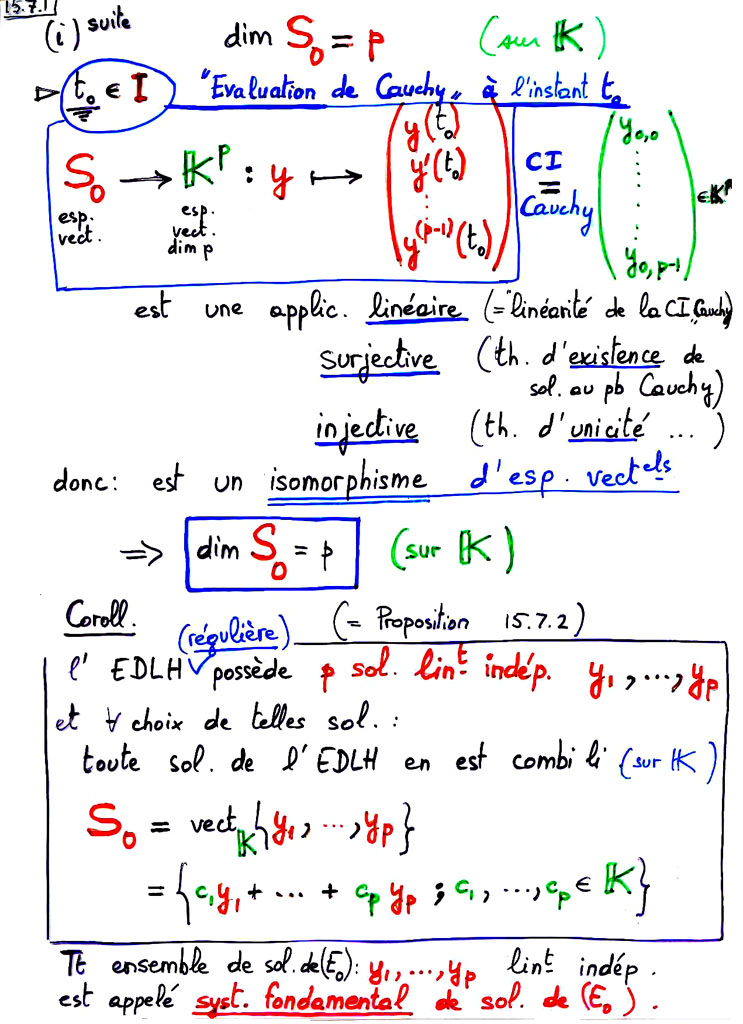 15.7.1
(i) suite dim S₀ = p (sur 𝕂)
▷ t₀ ∈ I "Evaluation de Cauchy" à l'instant t₀
S₀ → 𝕂ᵖ : y ↦ ( y(t₀) y'(t₀) ⋮ y⁽ᵖ⁻¹⁾(t₀) ) CI = Cauchy ( y₀,₀ ⋮ y₀,ₚ₋₁ ) ∈ 𝕂ᵖ
esp. vect. esp. vect. dim p
est une applic. linéaire (= "linéarité de la CI Cauchy)
surjective (th. d'existence de
sol. au pb Cauchy)
injective (th. d'unicité ... )
donc: est un isomorphisme d'esp. vectels
⇒ dim S₀ = p (sur 𝕂)
Coroll. (= Proposition 15.7.2)
(régulière)
l' EDLH possède p sol. lint indép. y₁, ..., yₚ
et ∀ choix de telles sol. :
toute sol. de l'EDLH en est combi li (sur 𝕂)
S₀ = vect𝕂 {y₁, ..., yₚ}
= {c₁y₁ + ... + cₚ yₚ ; c₁, ..., cₚ ∈ 𝕂}
Tt ensemble de sol. de (E₀): y₁, ..., yₚ lint indép.
est appelé syst. fondamental de sol. de (E₀).